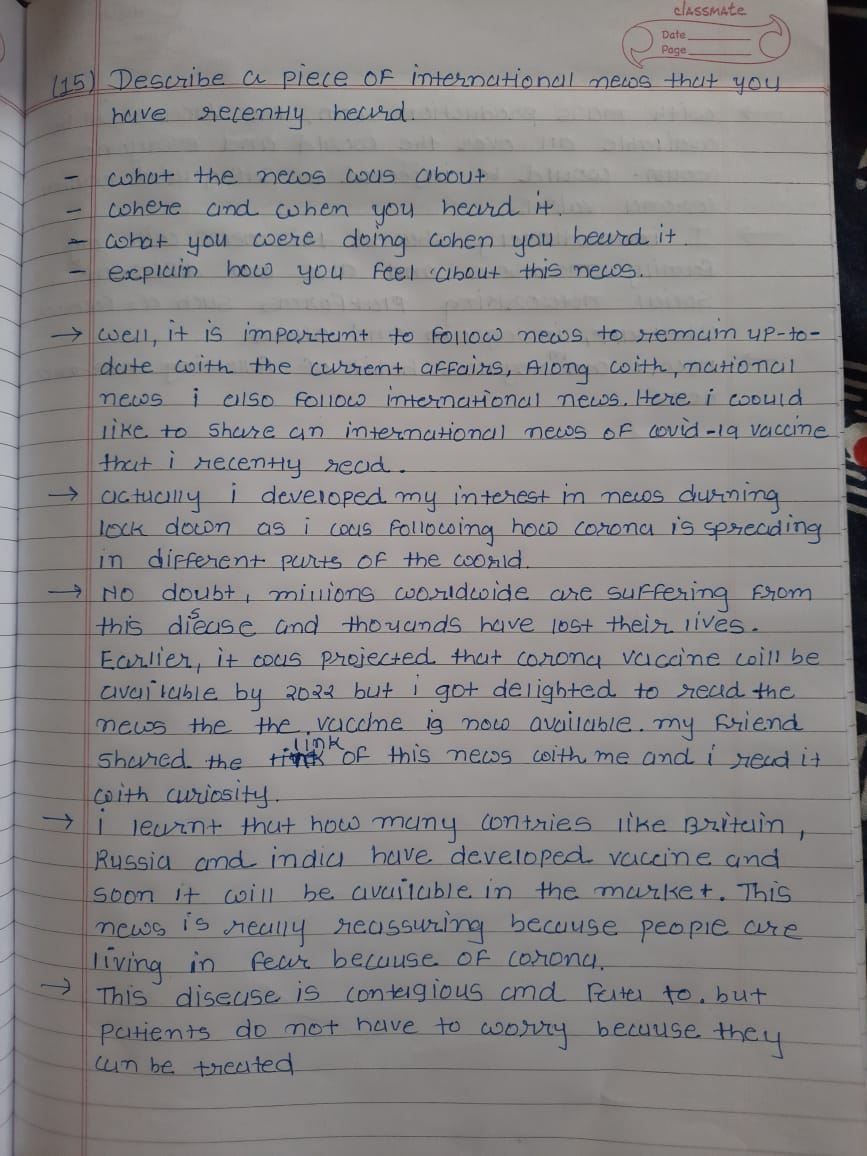 classmate
Date
Page
(15) Describe a piece of international news that you
have recently heard.
- what the news was about
- where and when you heard it.
- what you were doing when you heard it.
- explain how you feel about this news.
→ well, it is important to follow news to remain up-to-
date with the current affairs, Along with, national
news i also follow international news. Here i would
like to share an international news of covid-19 vaccine
that i recently read.
→ actually i developed my interest in news durning
lock down as i was following how corona is spreading
in different parts of the world.
→ No doubt, millions worldwide are suffering from
this disease and thousands have lost their lives.
Earlier, it was projected that corona vaccine will be
available by 2022 but i got delighted to read the
news the the vaccine is now available. my friend
shared the link of this news with me and i read it
with curiosity.
→ i learnt that how many contries like Britain,
Russia and india have developed vaccine and
soon it will be available in the market. This
news is really reassuring because people are
living in fear because of corona.
→ This disease is contagious and to. but
patients do not have to worry because they
can be treated